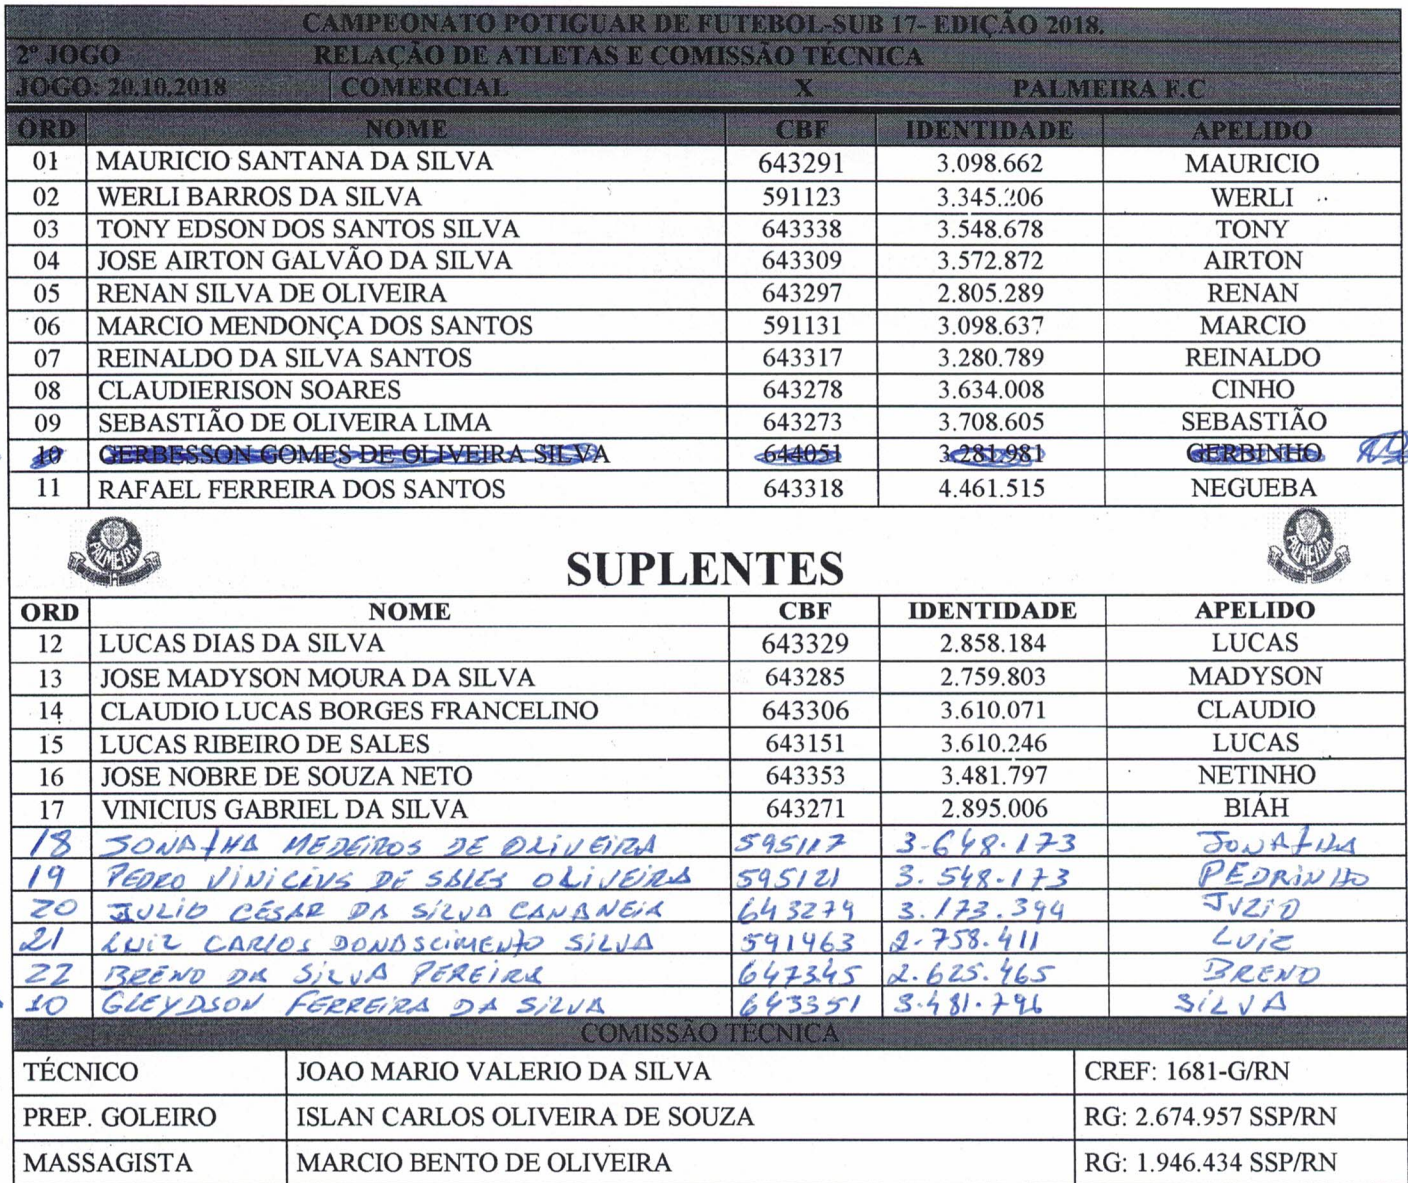 CAMPEONATO POTIGUAR DE FUTEBOL-SUB 17- EDIÇÃO 2018.
2º JOGO RELAÇÃO DE ATLETAS E COMISSÃO TÉCNICA
JOGO: 20.10.2018 COMERCIAL X PALMEIRA F.C
ORD NOME CBF IDENTIDADE APELIDO
01 MAURICIO SANTANA DA SILVA 643291 3.098.662 MAURICIO
02 WERLI BARROS DA SILVA 591123 3.345.206 WERLI
03 TONY EDSON DOS SANTOS SILVA 643338 3.548.678 TONY
04 JOSE AIRTON GALVÃO DA SILVA 643309 3.572.872 AIRTON
05 RENAN SILVA DE OLIVEIRA 643297 2.805.289 RENAN
06 MARCIO MENDONÇA DOS SANTOS 591131 3.098.637 MARCIO
07 REINALDO DA SILVA SANTOS 643317 3.280.789 REINALDO
08 CLAUDIERISON SOARES 643278 3.634.008 CINHO
09 SEBASTIÃO DE OLIVEIRA LIMA 643273 3.708.605 SEBASTIÃO
10 GERBESSON GOMES DE OLIVEIRA SILVA 644051 3.281.981 GERBINHO
11 RAFAEL FERREIRA DOS SANTOS 643318 4.461.515 NEGUEBA
PALMEIRA PALMEIRA
SUPLENTES
ORD NOME CBF IDENTIDADE APELIDO
12 LUCAS DIAS DA SILVA 643329 2.858.184 LUCAS
13 JOSE MADYSON MOURA DA SILVA 643285 2.759.803 MADYSON
14 CLAUDIO LUCAS BORGES FRANCELINO 643306 3.610.071 CLAUDIO
15 LUCAS RIBEIRO DE SALES 643151 3.610.246 LUCAS
16 JOSE NOBRE DE SOUZA NETO 643353 3.481.797 NETINHO
17 VINICIUS GABRIEL DA SILVA 643271 2.895.006 BIÁH
18 JONATHA MEDEIROS DE OLIVEIRA 595117 3-648.173 JONATHA
19 PEDRO VINICIUS DE SALES OLIVEIRA 595121 3.548-173 PEDRINHO
20 JULIO CÉSAR DA SILVA CANANEIA 643279 3.173.394 JULIO
21 LUIZ CARLOS DO NASCIMENTO SILVA 591463 2-758.411 LUIZ
22 BRENO DA SILVA PEREIRA 647345 2.625.465 BRENO
10 GLEYDSON FERREIRA DA SILVA 643351 3.481.796 SILVA
COMISSÃO TÉCNICA
TÉCNICO JOAO MARIO VALERIO DA SILVA CREF: 1681-G/RN
PREP. GOLEIRO ISLAN CARLOS OLIVEIRA DE SOUZA RG: 2.674.957 SSP/RN
MASSAGISTA MARCIO BENTO DE OLIVEIRA RG: 1.946.434 SSP/RN